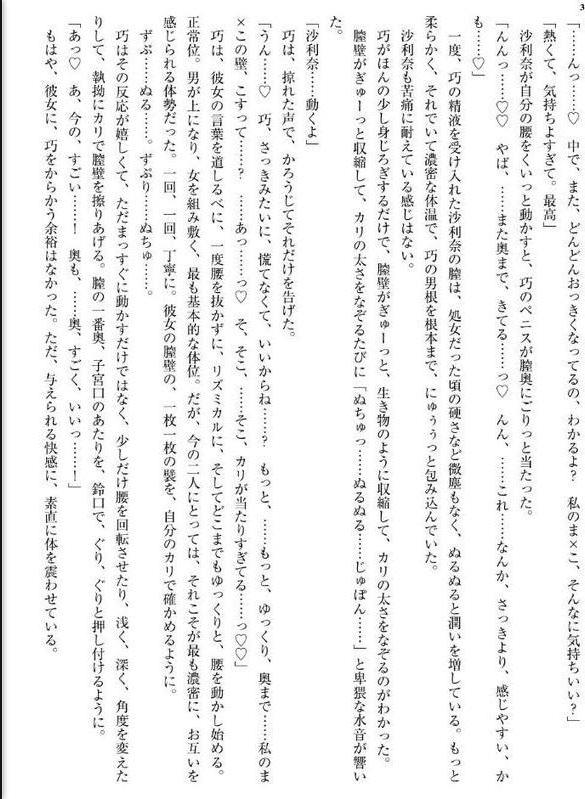 3
「……んっ……♡ 中で、また、どんどんおっきくなってるの、わかるよ？ 私のま×こ、そんなに気持ちいい？」
「熱くて、気持ちよすぎて。最高」
沙利奈が自分の腰をくいっと動かすと、巧のペニスが膣奥にごりっと当たった。
「んんっ……♡♡ やば、……また奥まで、きてる……っ♡ んん、……これ……なんか、さっきより、感じやすい、か
も……♡」
一度、巧の精液を受け入れた沙利奈の膣は、処女だった頃の硬さなど微塵もなく、ぬるぬると潤いを増している。もっと
柔らかく、それでいて濃密な体温で、巧の男根を根本まで、にゅぅぅっと包み込んでいた。
沙利奈も苦痛に耐えている感じはない。
巧がほんの少し身じろぎするだけで、膣壁がぎゅーっと、生き物のように収縮して、カリの太さをなぞるのがわかった。
膣壁がぎゅーっと収縮して、カリの太さをなぞるたびに「ぬちゅっ……ぬるぬる……じゅぽん……」と卑猥な水音が響い
た。
「沙利奈……動くよ」
巧は、掠れた声で、かろうじてそれだけを告げた。
「うん……♡ 巧、さっきみたいに、慌てなくて、いいからね……？ もっと、……もっと、ゆっくり、奥まで……私のま
×この壁、こすって……？ ……あっ……っ♡ そ、そこ、……そこ、カリが当たりすぎてる……っ♡♡」
巧は、彼女の言葉を道しるべに、一度腰を抜かずに、リズミカルに、そしてどこまでもゆっくりと、腰を動かし始める。
正常位。男が上になり、女を組み敷く、最も基本的な体位。だが、今の二人にとっては、それこそが最も濃密に、お互いを
感じられる体勢だった。一回、一回、丁寧に。彼女の膣壁の、一枚一枚の襞を、自分のカリで確かめるように。
ずぷ……ぬる……。ずぷり……ぬちゅ……。
巧はその反応が嬉しくて、ただまっすぐに動かすだけではなく、少しだけ腰を回転させたり、浅く、深く、角度を変えた
りして、執拗にカリで膣壁を擦りあげる。膣の一番奥、子宮口のあたりを、鈴口で、ぐり、ぐりと押し付けるように。
「あっ♡ あ、今の、すごい……！ 奥も、……奥、すごく、いいっ……！」
もはや、彼女に、巧をからかう余裕はなかった。ただ、与えられる快感に、素直に体を震わせている。